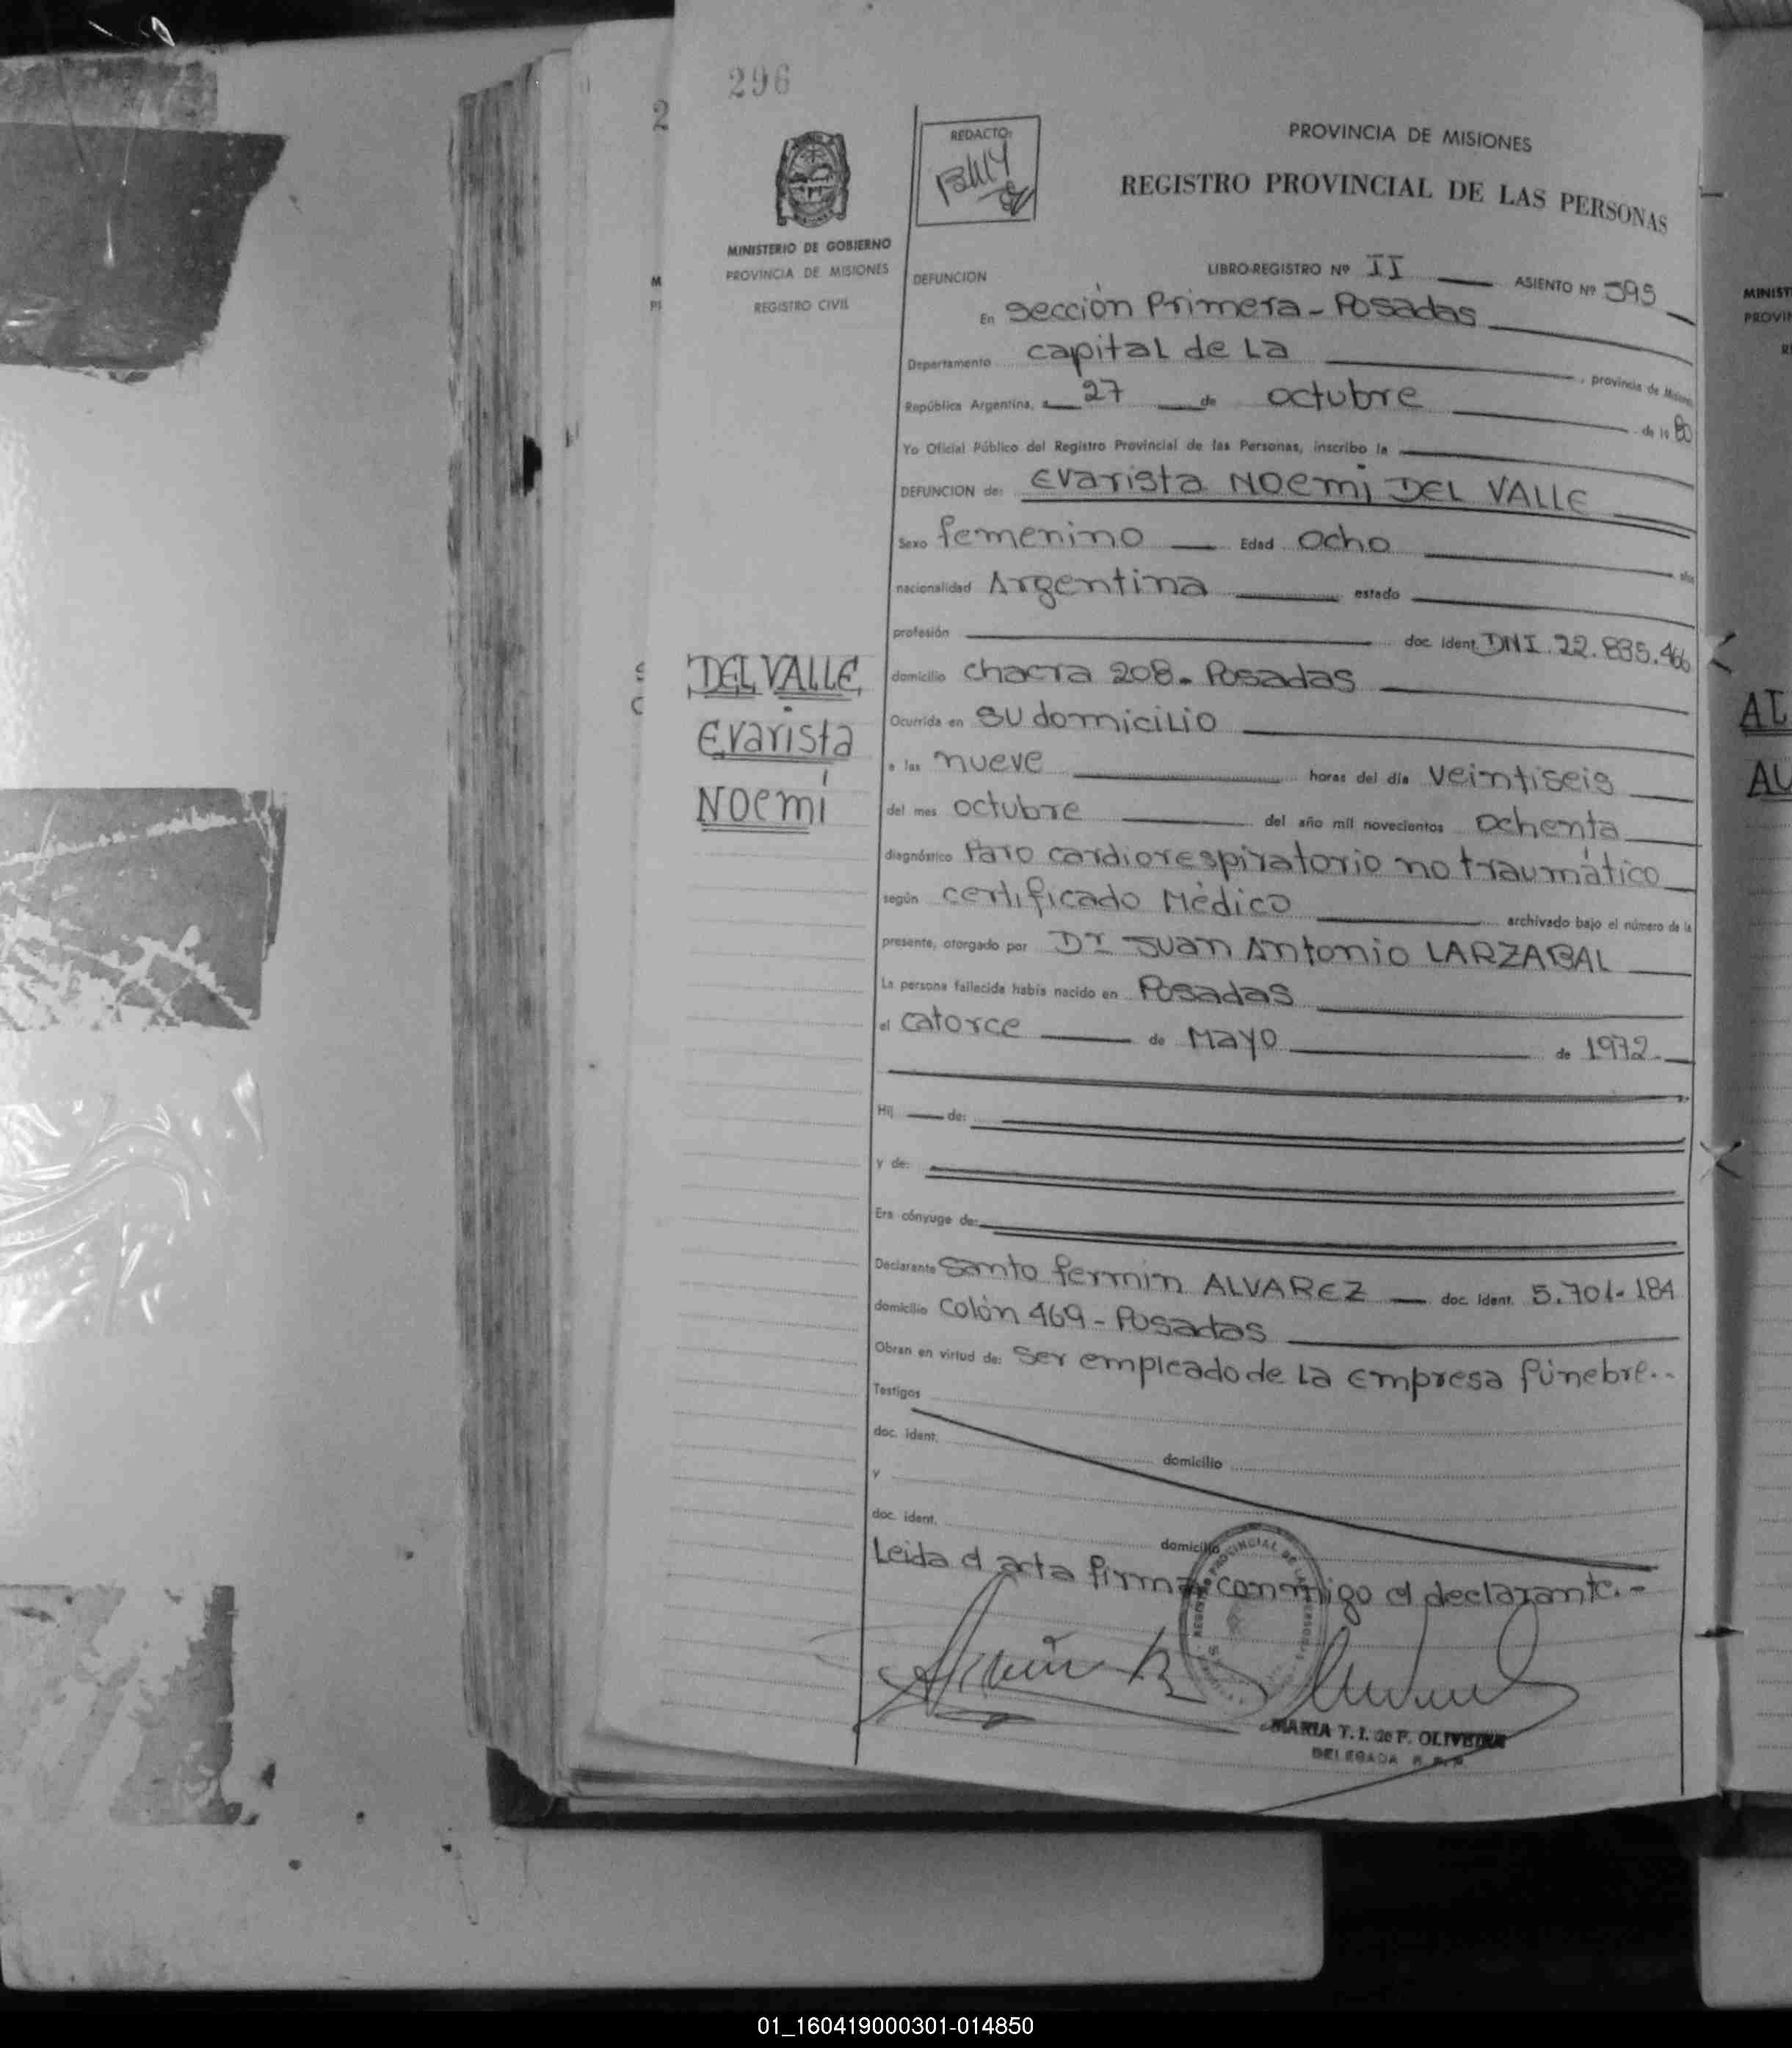 296
2
REDACTO:
PROVINCIA DE MISIONES
REGISTRO PROVINCIAL DE LAS PERSONAS
MINISTERIO DE GOBIERNO
PROVINCIA DE MISIONES
REGISTRO CIVIL
DEFUNCION LIBRO-REGISTRO Nº II ASIENTO Nº 595
En Sección Primera - Posadas
Departamento capital de La , provincia de Misiones
República Argentina, a 27 de octubre de 19 80
Yo Oficial Público del Registro Provincial de las Personas, inscribo la
DEFUNCION de: Evarista Noemi DEL VALLE
Sexo femenino Edad ocho años
nacionalidad Argentina estado
profesión doc. ident. DNI. 22.835.466
DEL VALLE
Evarista
Noemí
domicilio chacra 208. Posadas
Ocurrida en su domicilio
a las nueve horas del día veintiseis
del mes octubre del año mil novecientos ochenta
diagnóstico Paro cardiorespiratorio no traumático
según certificado Médico archivado bajo el número de la
presente, otorgado por Dr Juan Antonio LARZABAL
La persona fallecida había nacido en Posadas
el catorce de Mayo de 1972.
Hij de:
y de:
Era cónyuge de:
Declarante Santo fermin ALVAREZ doc. ident. 5.701.184
domicilio colón 469 - Posadas
Obran en virtud de: ser empleado de la empresa fúnebre.-
Testigos
doc. ident. domicilio
y
doc. ident. domicilio
Leida el acta firma conmigo el declarante.-
MARIA T. I. de F. OLIVEIRA
DELEGADA R.P.P.
MINIST
PROVIN
AL
AU
01_160419000301-014850